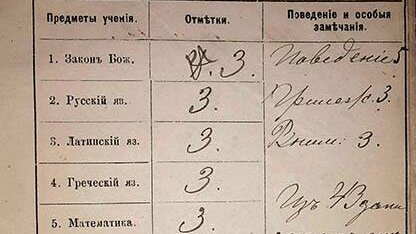 Предметы ученія. Отмѣтки. Поведеніе и особыя замѣчанія.
1. Законъ Бож. 3. Поведеніе 5
2. Русскій яз. 3. Прилеж. 3.
3. Латинскій яз. 3. Вним. 3.
4. Греческій яз. 3.
Изъ 43
5. Математика. 3.